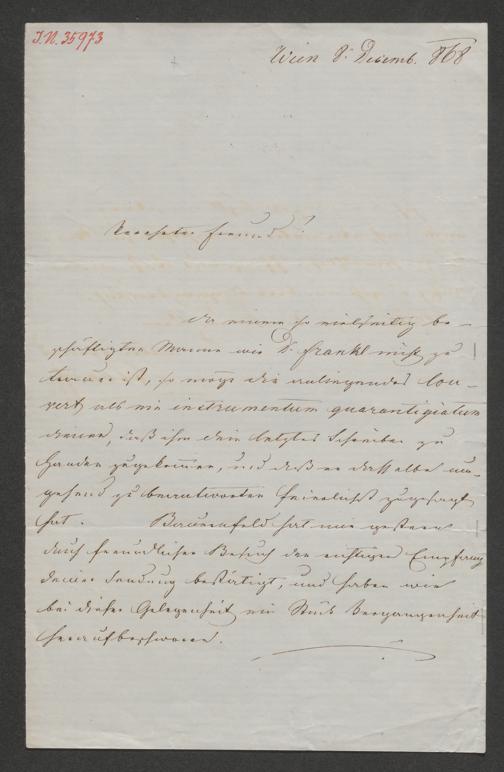 I.N. 35973
Wien 8. Decemb. 868
Verehrter Freund!
Da einem so vielseitig be-
schäftigten Manne wie Dr. Frankl nicht zu
trauen ist, so möge das anliegende Cou-
vert als ein instrumentum quarantigiatum
dienen, daß ihm dein letztes Schreiben zu
Handen gekommen, und daß er dasselbe um-
gehend zu beantworten feierlichst zugesagt
hat. Bauernfeld hat mir gestern
durch freundlichen Besuch den richtigen Empfang
deiner Sendung bestätigt, und haben wir
bei dieser Gelegenheit ein Stück Vergangenheit
heraufbeschworen.